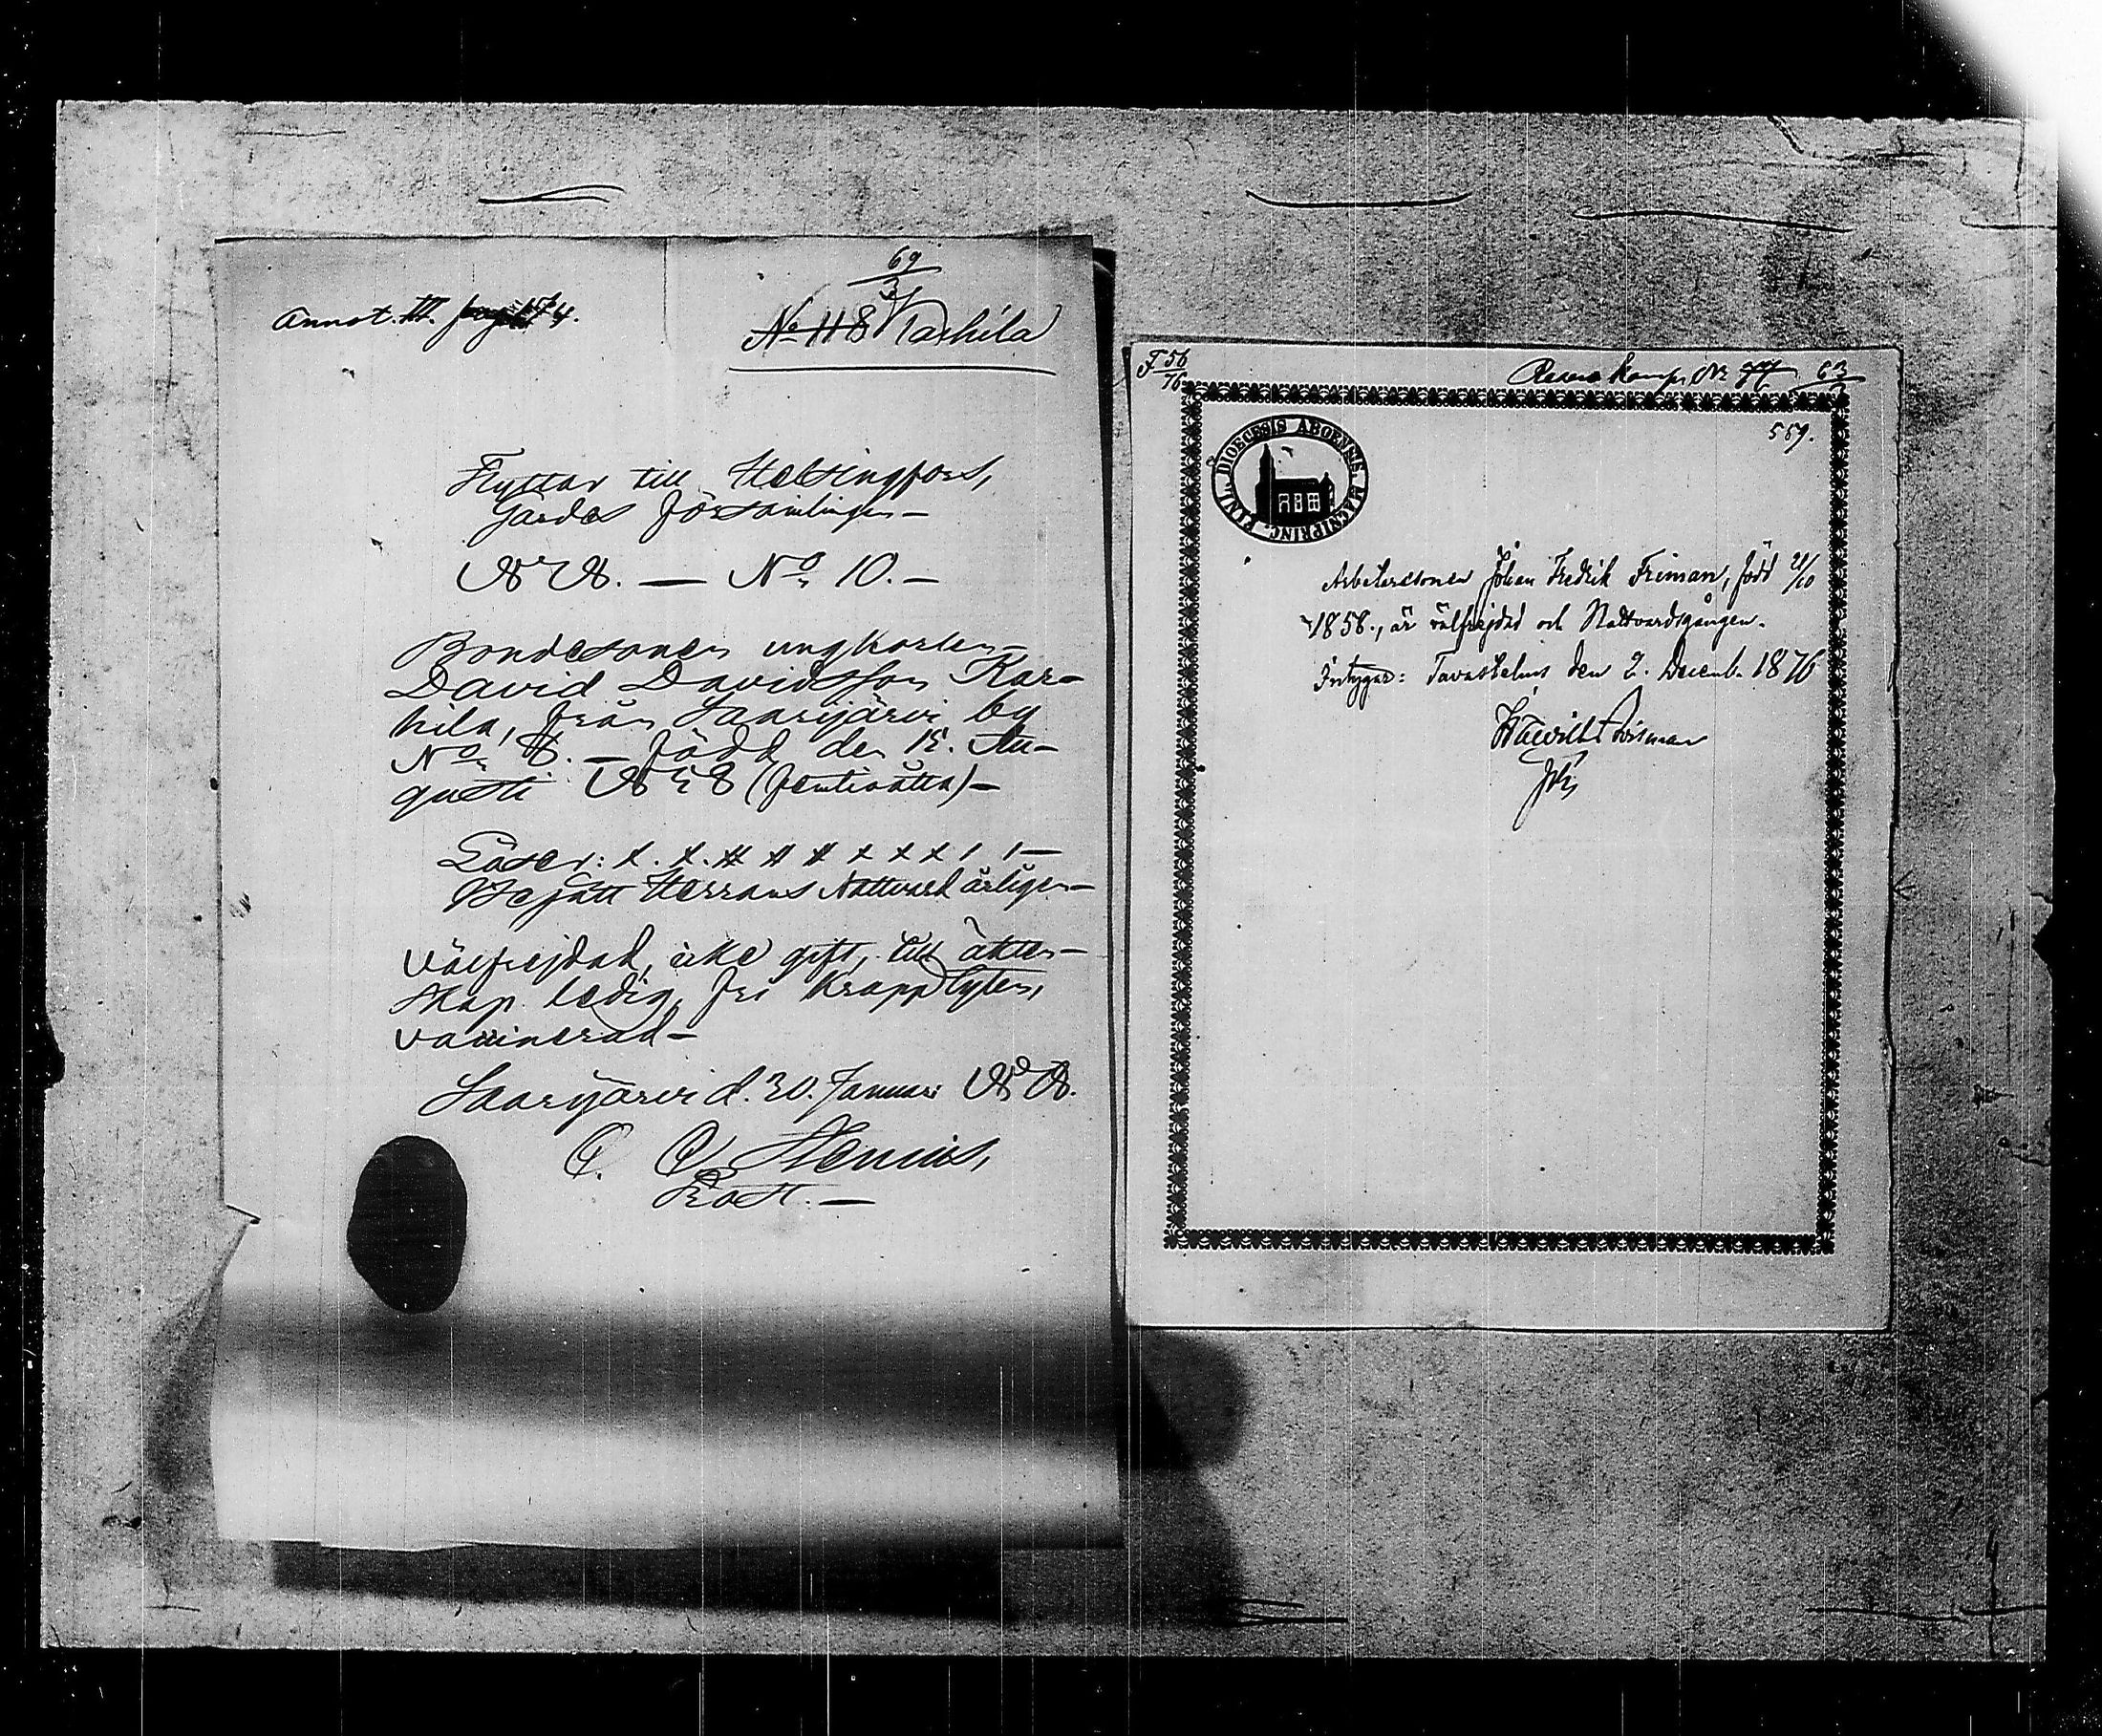 69
Annot. III. pag 174.
No 118 Karhila
Flyttar till Helsingfors,
Gardes församlingen —
— No 10. —
Bondesonen ungkarlen
David Davidsson Kar-
hila, från Saarijärvi by
No 8. — född den 15. Au-
gusti 1858 (femtioåtta) —
Läser:
Begått Herrans Nattvard årligen —
Välfrejdad, icke gift, till äkten-
skap ledig, fri kropp lyten,
vaccinerad —
Saarijärvi d. 30. Januari
Prost. —
F 56/76
Reserv komp. No 63
569.
DIOECESIS ABOENSIS MAGNI PRINC. FINL.
Arbetaresonen Johan Fredrik Friman, född 21/10
1858., är välfrejdad och Nattvardsgången.
Intygar: Tavastehus den 2. Decemb. 1876